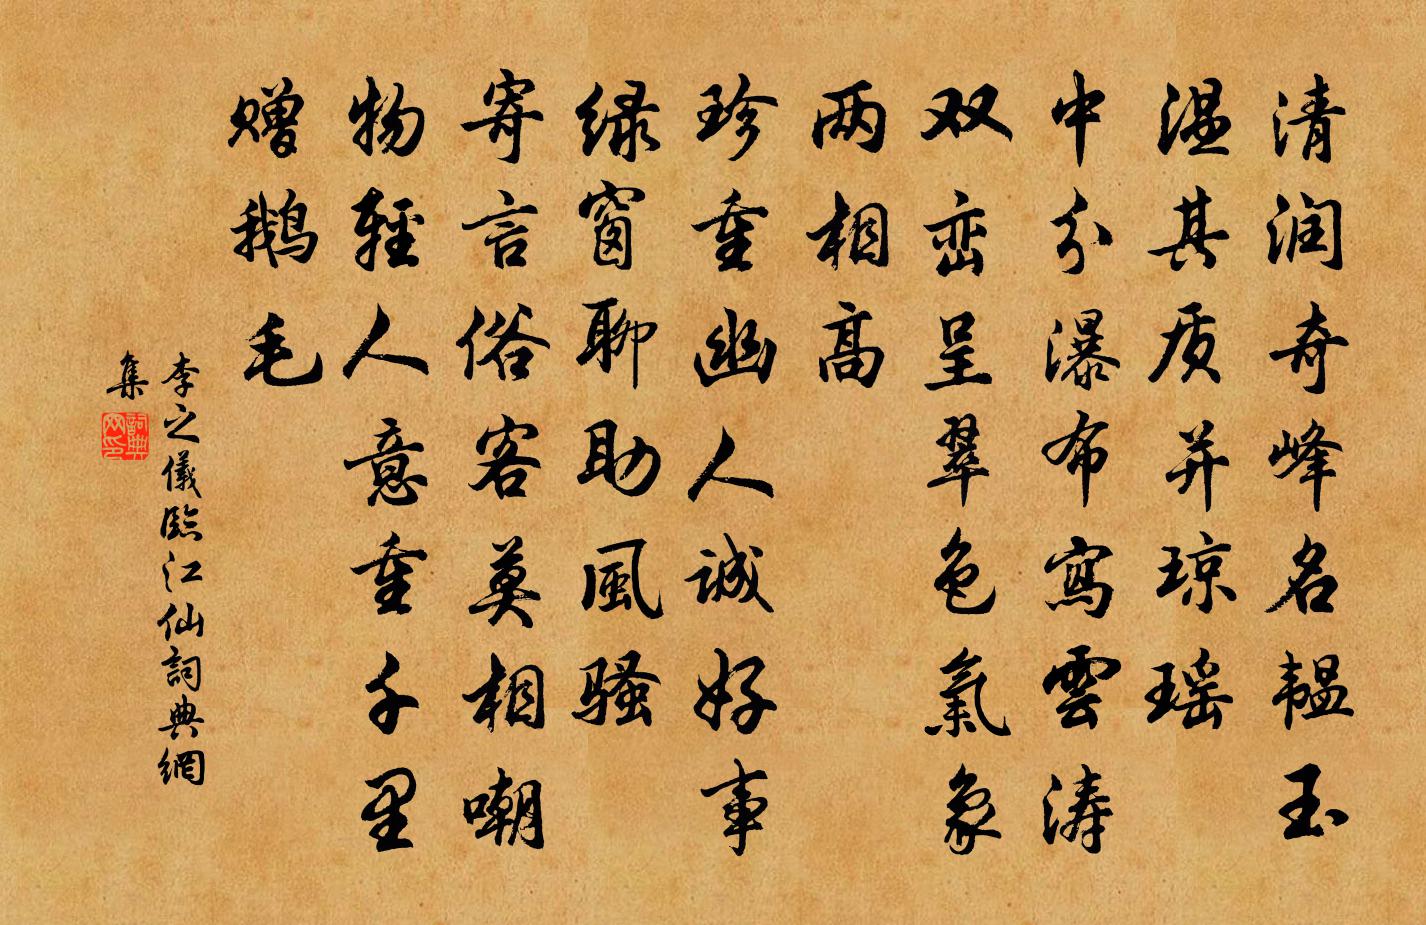 清润奇峰名韫玉
温其质并琼瑶
中分瀑布寫雲涛
双峦呈翠色氣象
两相高
珍重幽人诚好事
绿窗聊助風骚
寄言俗客莫相嘲
物輕人意重千里
赠鹅毛
李之儀臨江仙詞典網
集
詞典网印